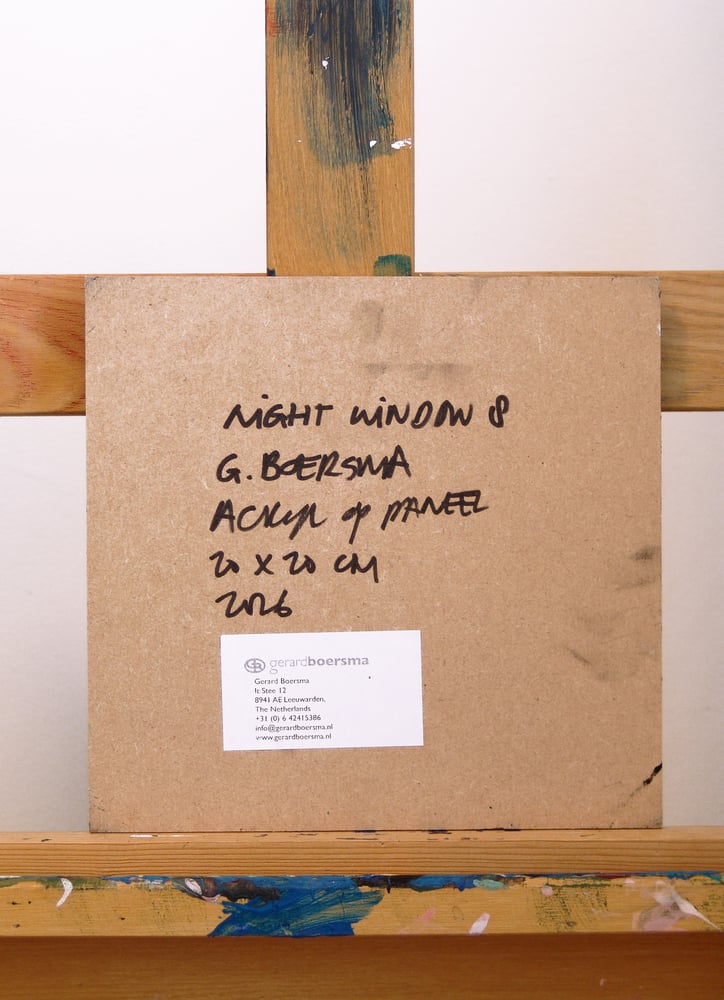 NIGHT WINDOW 8
G. BOERSMA
ACRYL op PANEEL
20 X 20 CM
2026
GB gerardboersma
Gerard Boersma
It Stee 12
8941 AE Leeuwarden,
The Netherlands
+31 (0) 6 42415386
info@gerardboersma.nl
www.gerardboersma.nl